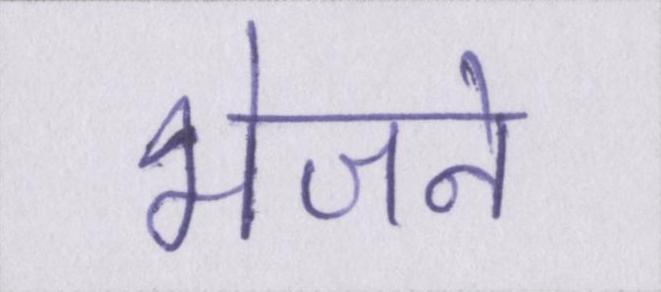 भेजने